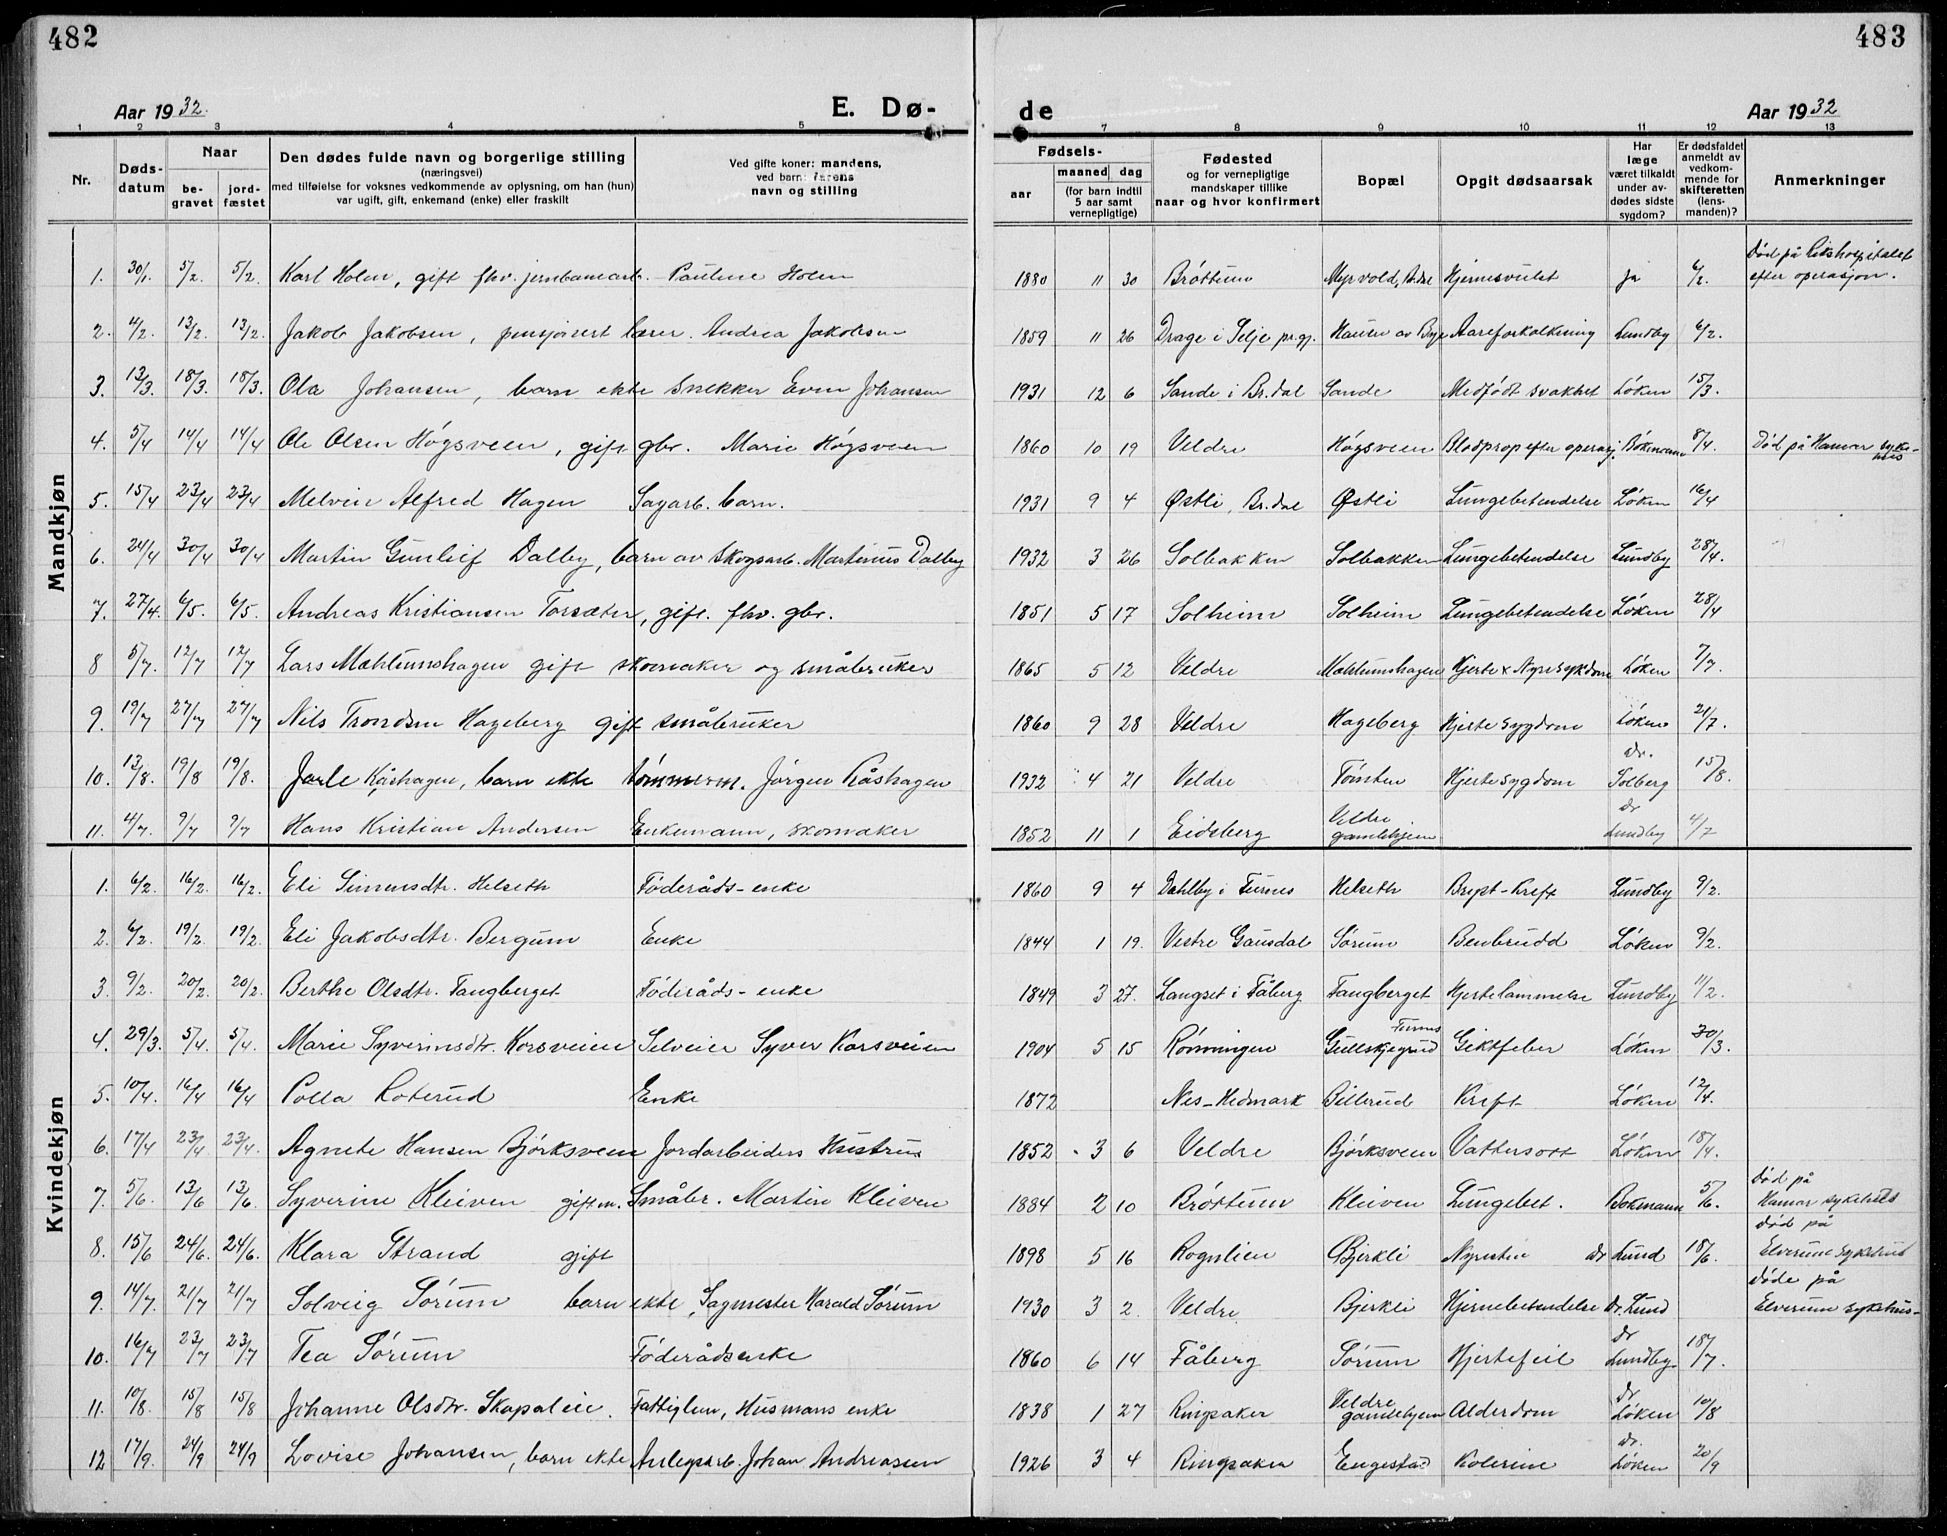 482
483
Aar 1932.
E. Dø-
de
Aar 1932
1 2 3 4 5 7 8 9 10 11 12 13
Nr.
Døds-
datum
Naar
be-
gravet
jord-
fæstet
Den dødes fulde navn og borgerlige stilling
(næringsvei)
med tilføielse for voksnes vedkommende av oplysning, om han (hun)
var ugift, gift, enkemand (enke) eller fraskilt
Ved gifte koner: mandens,
ved barn: farens
navn og stilling
Fødsels-
aar
maaned dag
(for barn indtil
5 aar samt
vernepligtige)
Fødested
og for vernepligtige
mandskaper tillike
naar og hvor konfirmert
Bopæl
Opgit dødsaarsak
Har
læge
været tilkaldt
under av-
dødes sidste
sygdom?
Er dødsfaldet
anmeldt av
vedkom-
mende for
skifteretten
(lens-
manden)?
Anmerkninger
Mandkjøn
1. 30/1. 5/2. 5/2. Karl Holen, gift fhv. jernbanearb. Pauline Holen 1880 11 30 Brøttum Myrvold, Br.dal Hjernesvulst ja 6/2. Død på Rikshospitalet efter operasjon.
2. 4/2. 13/2. 13/2. Jakob Jakobsen, pensjonert lærer. Andrea Jakobsen 1859 11 26 Drage i Selje pr.gj. Hausen av Bye Aareforkalkning Lundby 6/2.
3. 13/3. 18/3. 18/3. Ola Johansen, barn ekte Snekker Even Johansen 1931 12 6 Sande i Br.dal Sande Medfødt svakhet Løken 15/3.
4. 5/4 14/4 14/4 Ole Olsen Høgsveen, gift gbr. Marie Høgsveen 1860 10 19 Veldre Høgsveen Blodprop efter operasj. Bøkmann 8/4. Død på Hamar sykehus
5. 15/4 23/4 23/4 Melvin Alfred Hagen Sagarb. barn. 1931 9 4 Østli, Br.dal Østli Lungebetendelse Løken 16/4
6. 24/4 30/4 30/4 Martin Gunleif Dalby, barn av skogsarb. Martinus Dalby 1932 3 26 Solbakken Solbakken Lungebetendelse Lundby 28/4.
7. 27/4. 6/5. 6/5. Andreas Kristiansen Torsæter, gift. fhv. gbr. 1851 5 17 Solheim Solheim Lungebetendelse Løken 28/4
8 5/7. 12/7 12/7 Lars Mæhlumshagen gift skomaker og småbruker 1865 5 12 Veldre Mæhlumshagen Hjerte x Nyresykdom Løken 7/7.
9. 19/7 27/7 27/7 Nils Trondsen Hageberg gift småbruker 1860 9 28 Veldre Hageberg Hjertesygdom Løken 21/7.
10. 13/8. 19/8 19/8. Jarle Kåshagen, barn ekte tømmerm. Jørgen Kåshagen 1932 4 21 Veldre Tømten Hjertesygdom dr. Solberg 15/8.
11. 4/7. 9/7 9/7 Hans Kristian Andersen Enkemann, skomaker 1852 11 1 Eidsberg Veldre gamlehjem dr Lundby 4/7
Kvindekjøn
1. 6/2. 16/2. 16/2. Eli Simensdtr. Helseth Føderåds-enke 1860 9 4 Dahlby i Furnes Helseth Bryst-Kreft Lundby 9/2.
2. 6/2. 19/2 19/2. Eli Jakobsdtr. Bergum Enke 1844 1 19. Vestre Gausdal Sørum Benbrudd Løken 9/2.
3. 9/2. 20/2. 20/2. Berthe Olsdtr. Tangberget Føderåds-enke 1849 3 27. Langset i Fåberg Tangberget Hjertelammelse Lundby 11/2.
4. 29/3. 5/4. 5/4. Marie Syverinsdtr. Korsveien Selveier Syver Korsveien 1904 5 15 Rønningen Gullskjegrud Furnes Giktfeber Løken 30/3.
5. 10/4. 16/4 16/4 Polla Loterud Enke 1872 Nes-Hedmark Billerud Kreft Løken 12/4.
6. 17/4 23/4 23/4. Agnete Hansen Bjørksveen Jordarbeiders Hustru 1852 3 6 Veldre Bjørksveen Vattersott Løken 18/4.
7. 5/6. 13/6 13/6. Syverine Kleiven gift m. Småbr. Martin Kleiven 1884 2 10 Brøttum Kleiven Lungebet. Bokmann 5/6. død på Hamar sykehus
8. 15/6 24/6. 24/6. Klara Strand gift 1898 5 16 Rognlien Bjerkli Nyresten dr Lund 18/6. død på Elverum sykehus
9. 14/7. 21/7 21/7 Solveig Sørum barn ekte, Sagmester Harald Sørum 1930 3 2. Veldre Bjerkli Hjernebetendelse Dr. Lund døde på Elverum sykehus-
10. 16/7 23/7 23/7 Tea Sørum Føderådsenke 1860 6 14 Fåberg Sørum Hjertefeil dr Lundby 18/7.
11. 10/8. 15/8 15/8 Johanne Olsdtr. Skapaleie. Fattiglem, Husmans enke 1838 1 27 Ringsaker Veldre gamlehjem Alderdom dr Løken 10/8
12 17/9. 24/9 24/9 Lovise Johansen, barn ekte Anlegsarb. Johan Andreasen 1926 3 4 Ringsaker Engestad Kolerine dr. Løken 20/9